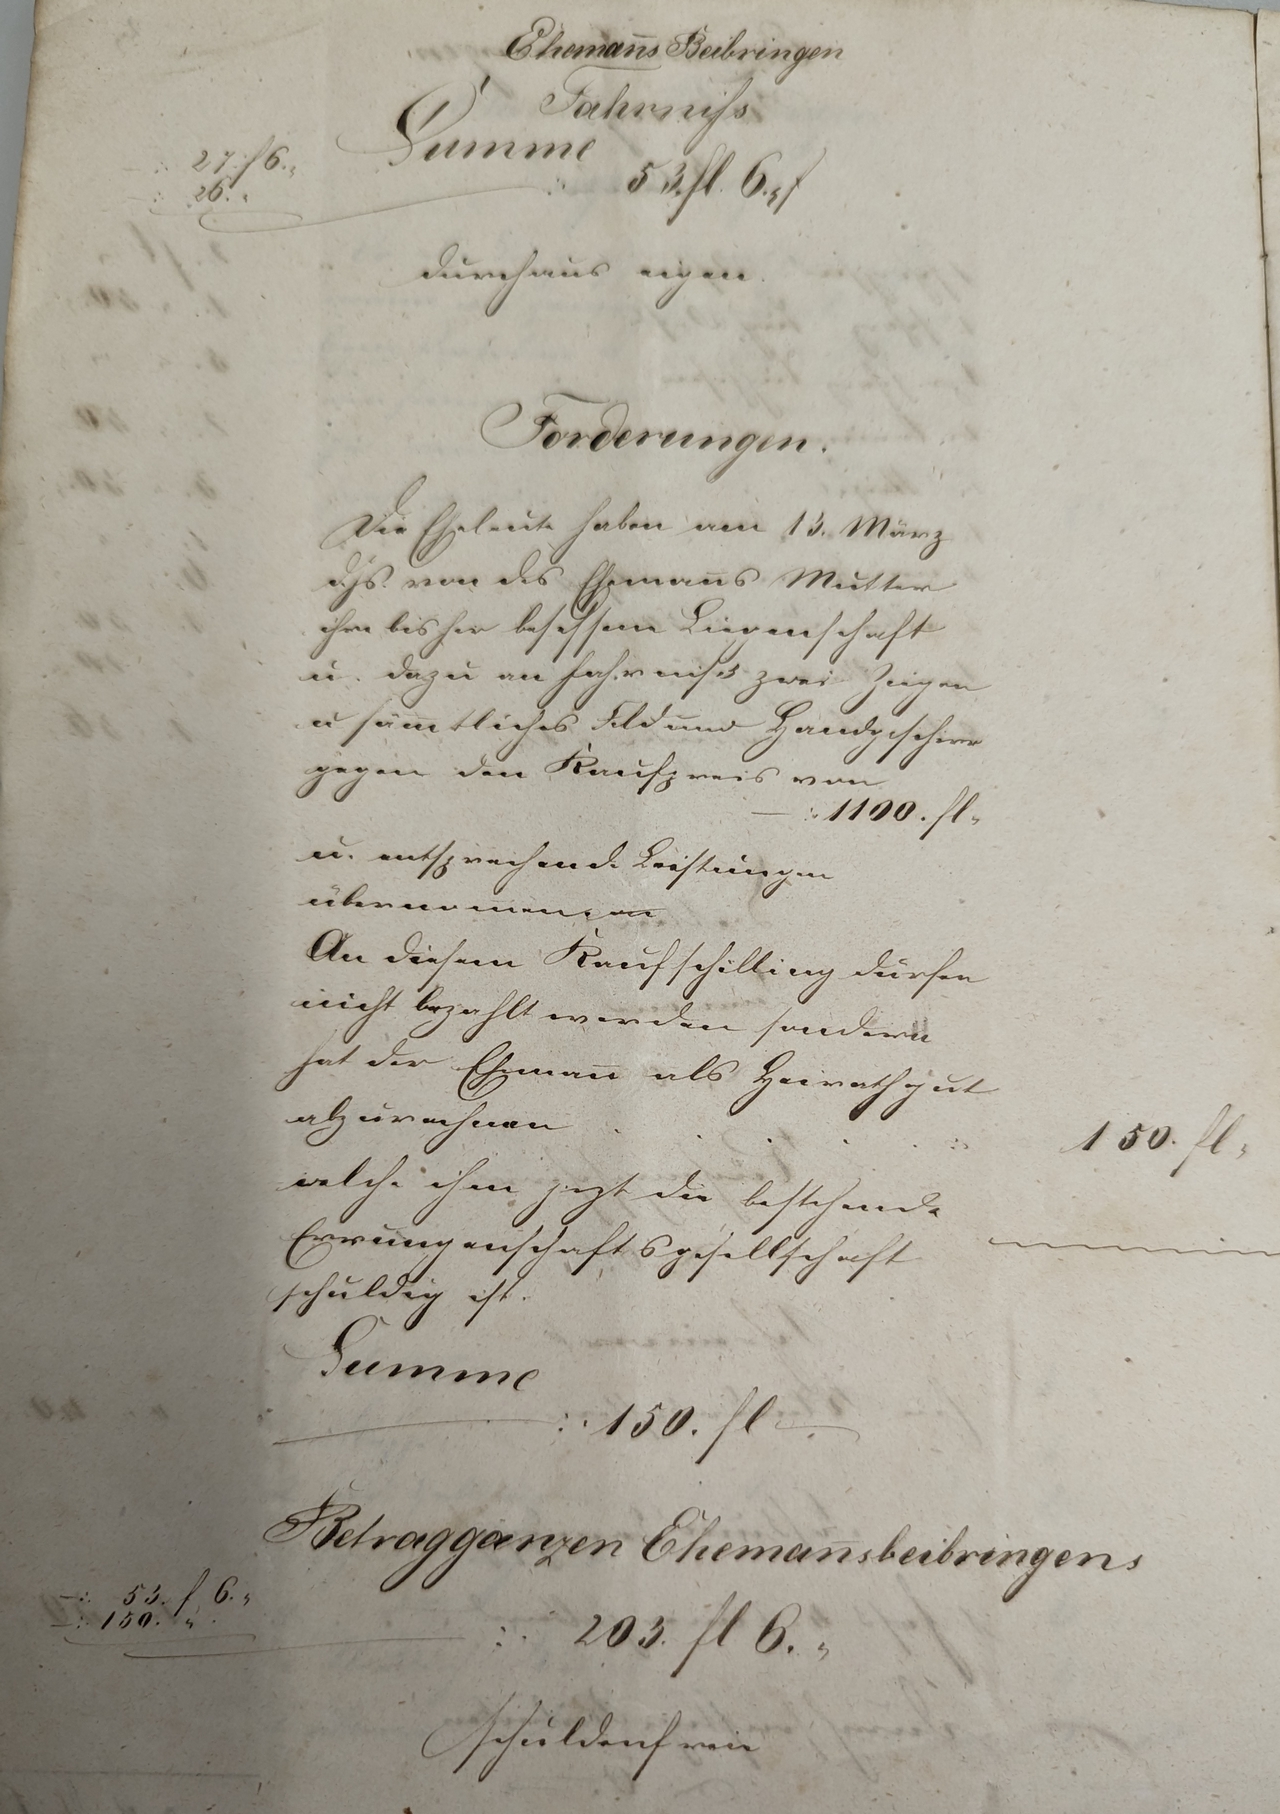 Ehemañs Beibringen
Fahrniß
Summe
27. f 6.„
26. „
53. fl. 6. „ f
durchaus eigen.
Forderungen.
Die Eheleute haben am 13. März
djs. von des Ehemañs Mutter
ihre bisher besessene Liegenschaft
u. dazu an Fahrniß zwei Ziegen
u sämtliches Feld und Handgeschirr
gegen den Kaufpreis von
—:1100. fl„
u. entsprechende Leistungen
übernommen
An diesem Kaufschilling dürfen
nicht bezahlt werden sondern
hat der Ehemañ als Heirathgut
abzurechnen . . . . :: 150. fl„
welche ihm jezt die bestehende
Errungenschaftsgesellschaft
schuldig ist.
Summe
:: 150. fl
Betrag ganzen Ehemañsbeibringens
—: 53. f 6. „
—: 150. „
:: 203. fl 6. „
schuldenfrei